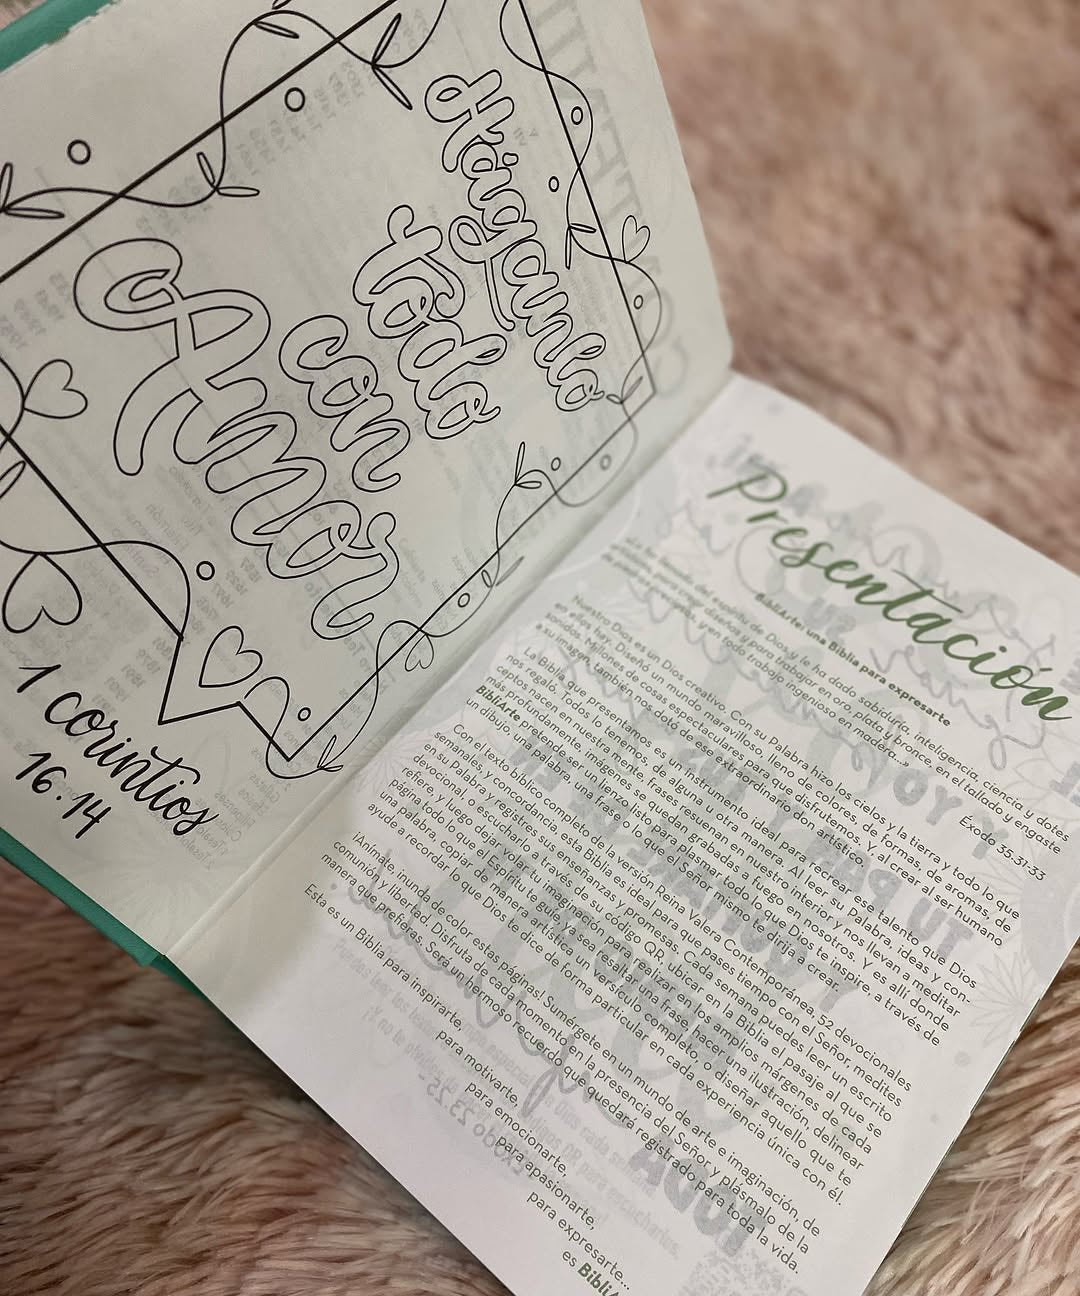 Háganlo
todo
con
Amor
1 corintios
16.14
Presentación
BibliArte: una Biblia para expresarte
«Lo he llenado del espíritu de Dios y le ha dado sabiduría, inteligencia, ciencia y dotes
artísticas para crear diseños y para trabajar en oro, plata y bronce, en el tallado y engaste
de piedras preciosas, y en todo trabajo ingenioso en madera…»
Éxodo 35.31-33
Nuestro Dios es un Dios creativo. Con su Palabra hizo los cielos y la tierra y todo lo que
en ellos hay. Diseñó un mundo maravilloso, lleno de colores, de formas, de aromas, de
sonidos. Millones de cosas espectaculares para que disfrutemos. Y al crear al ser humano
a su imagen, también nos dotó de ese extraordinario don artístico.
La Biblia que presentamos es un instrumento ideal para recrear ese talento que Dios
nos regaló. Todos lo tenemos, de alguna u otra manera. Al leer su Palabra, ideas y con-
ceptos nacen en nuestra mente, frases resuenan en nuestro interior y nos llevan a meditar
más profundamente, imágenes se quedan grabadas a fuego en nosotros. Y es allí donde
BibliArte pretende ser un lienzo listo para plasmar todo lo que Dios te inspire, a través de
un dibujo, una palabra, una frase y lo que el Señor mismo te dirija a crear.
Con el texto bíblico completo de la versión Reina Valera Contemporánea, 52 devocionales
semanales, y concordancia, esta Biblia es ideal para que pases tiempo con el Señor, medites
en su Palabra y registres sus enseñanzas y promesas. Cada semana puedes leer un escrito
devocional, o escucharlo a través de su código QR, ubicar en la Biblia el pasaje al que se
refiere, y luego dejar volar tu imaginación para realizar en los amplios márgenes de cada
página todo lo que el Espíritu te guíe, ya sea resaltar una frase, hacer una ilustración, delinear
una palabra, copiar de manera artística un versículo completo, o diseñar aquello que te
ayude a recordar lo que Dios te dice de forma particular en cada experiencia única con él.
¡Anímate, inunda de color estas páginas! Sumérgete en un mundo de arte e imaginación, de
comunión y libertad. Disfruta de cada momento en la presencia del Señor y plásmalo de la
manera que prefieras. Será un hermoso recuerdo que quedará registrado para toda la vida.
Esta es un Biblia para inspirarte,
para motivarte,
para emocionarte,
para apasionarte,
para expresarte...
es